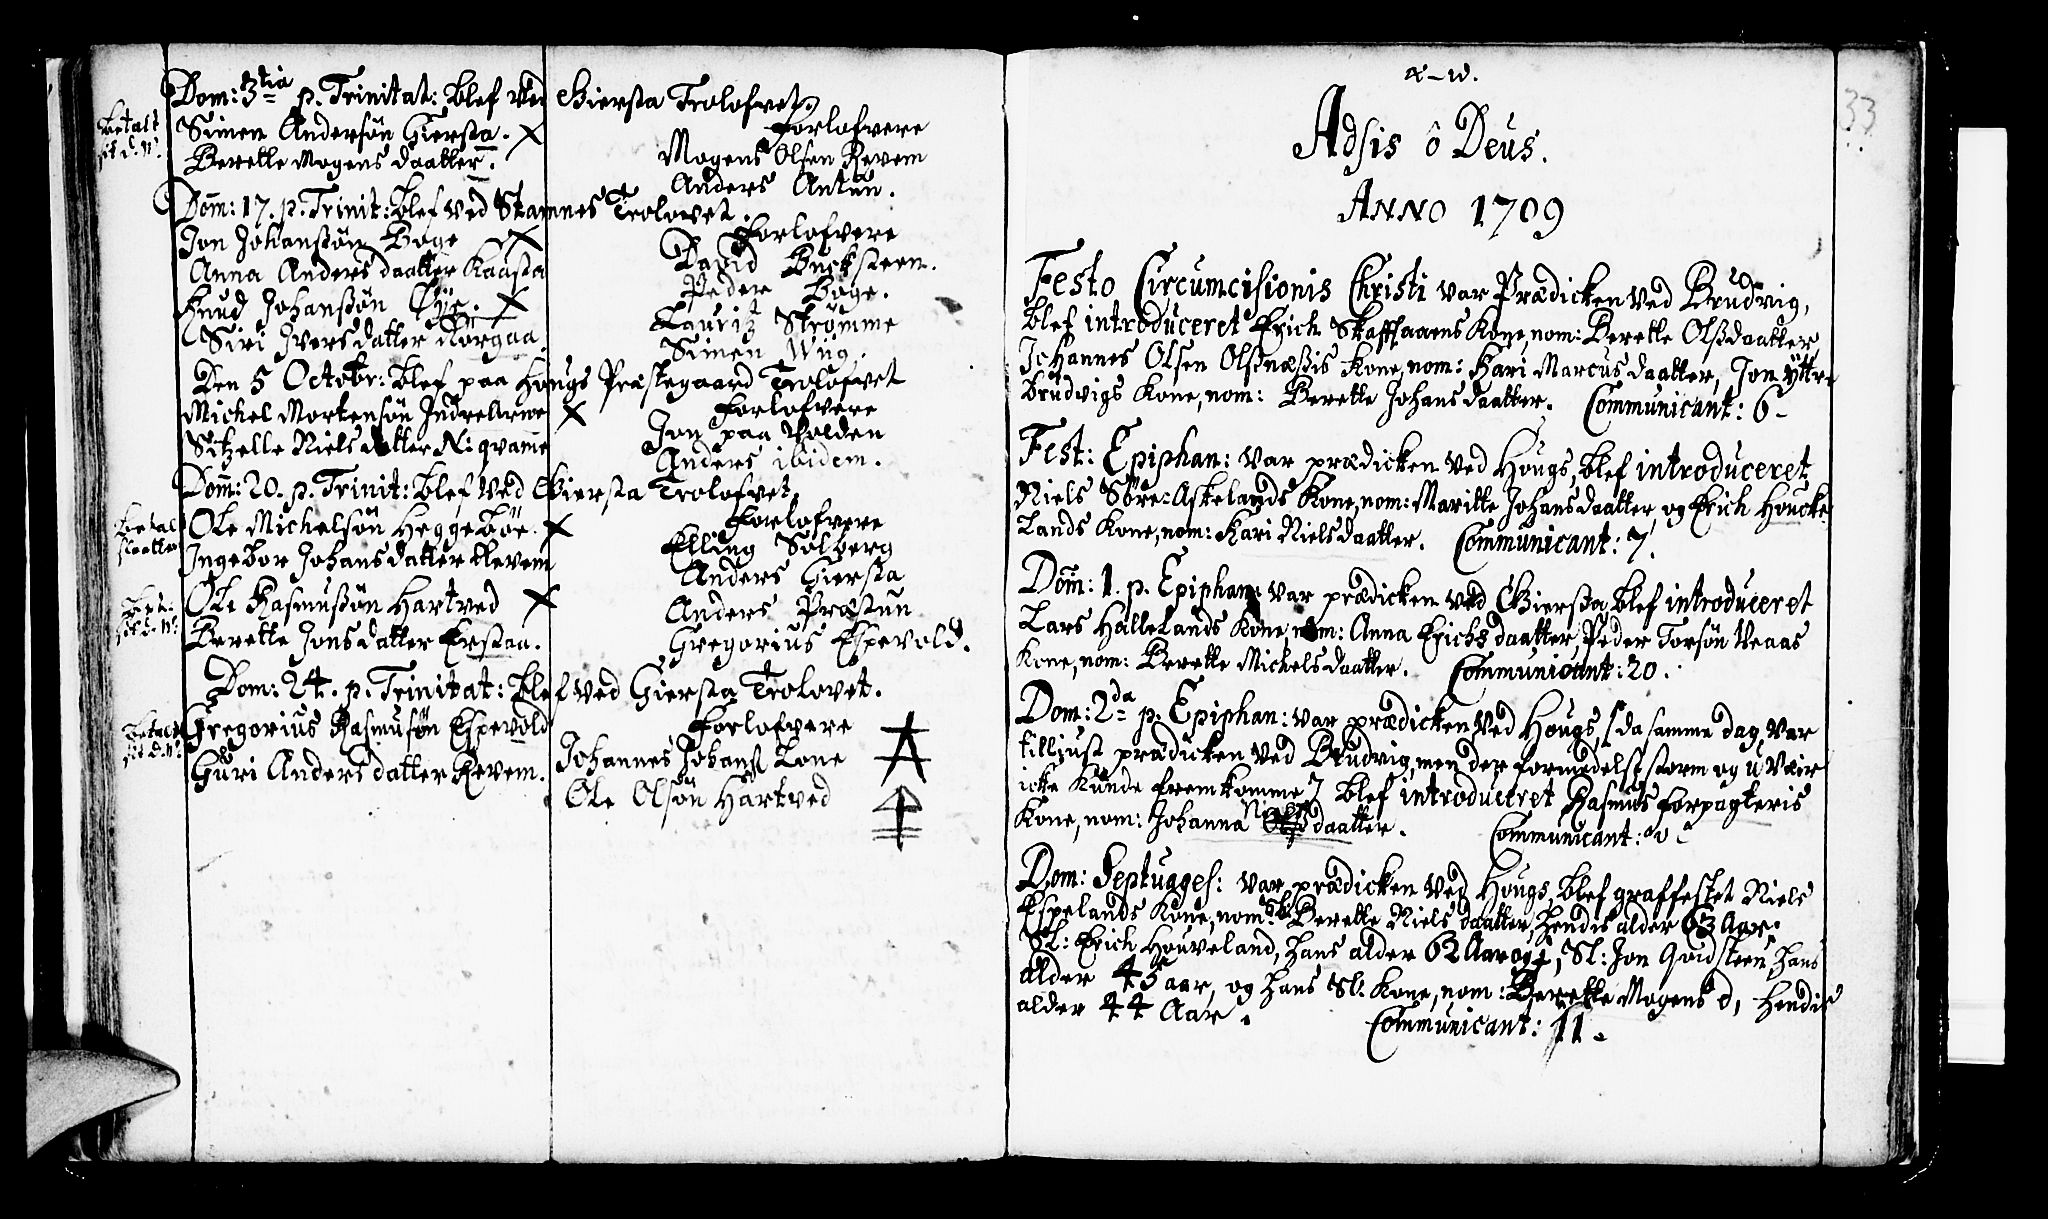 Dom: 3tia p. Trinitat: blef ved Giersta Trolofvet
Betalt
Simen Andersøn Giersta. X
Forlofvere
Berette Mogens daatter.
Mogens Olsen Revem
Anders Antun.
Dom: 17. p. Trinit: blef ved Stamnes Trolovet.
Jon Johanssøn Boge X
Forlofvere
Anna Anders daatter Kaasta
David Bucksteen.
Knud Johanssøn X
Peder Boge.
Siri Ivers datter Norgaa
Lauritz Strømme
Simen Wiig.
Den 5 Octobr: blef paa Hougs Præstegaard Trolofvet
Michel Mortensøn Indre Arne X
Forlofvere
Sitzelle Niels datter N: qvamme
Jon paa Volden
Anders ibidem.
Dom: 20. p. Trinit: blef ved Giersta Trolofvet
Betal
Ole Michelsøn Heggebøe. X
Forlofvere
Ingebor Johans datter Revem
Elling Solberg
Anders Giersta
Ole Rasmussøn Hartved X
Anders Præstun
Berette Jons datter Erstaa.
Gregorius Espevold.
Dom: 24. p. Trinitat: blef ved Giersta Trolovet.
Betalt
Gregorius Rasmusøn Espevold
Forlofvere
Guri Anders datter Revem.
Johannes Johans Lone
Ole Olsøn Hartved
33
α–ω.
Adsis ô Deus.
ANNO 1709
Festo Circumcisionis Christi var Prædicken ved Brudvig,
blef introduceret Erich Skafsaaens Kone, nom: Berette Olsdaatter
Johannes Olsen Olsnæssis Kone, nom: Kari Marcus daatter, Jon ÿttre
brudvigs Kone, nom: Berette Johans daatter. Communicant: 6–
Fest: Epiphan: var prædicken ved Hougs, blef introduceret
Niels Søre: Askelands Kone, nom: Maritte Johans daatter, og Erich Houcke
Lands Kone, nom: Kari Niels daatter. Communicant: 7.
Dom: 1. p. Epiphan: var prædicken ved Giersta, blef introduceret
Lars Hallelands Kone, nom: Anna Erichs daatter, Peder Torsøn Veaas
Kone, nom: Berette Michels daatter. Communicant: 20.
Dom: 2da p. Epiphan: var prædicken ved Hougs, [da samme dag var
tilliust prædicken ved Brudvig, men der formedelst storm og u væir
icke kunde fremkomme] blef introduceret Rasmus forpagteris
Kone, nom: Johanna Niels daatter. Communicant: 0
Dom: Septuages: var prædicken ved Hougs, blef graffestet Niels
Espelands Kone, nom: Sl: Berette Niels daatter, hendis alder 63 Aar.
Sl: Erich Houveland, hans alder 62 Aar og ½, Sl: Jon Qvidsteen, hans
alder 45 aar, og hans Sl: Kone, nom: Berette Mogens d, hendis
alder 44 Aar. Communicant: 11.